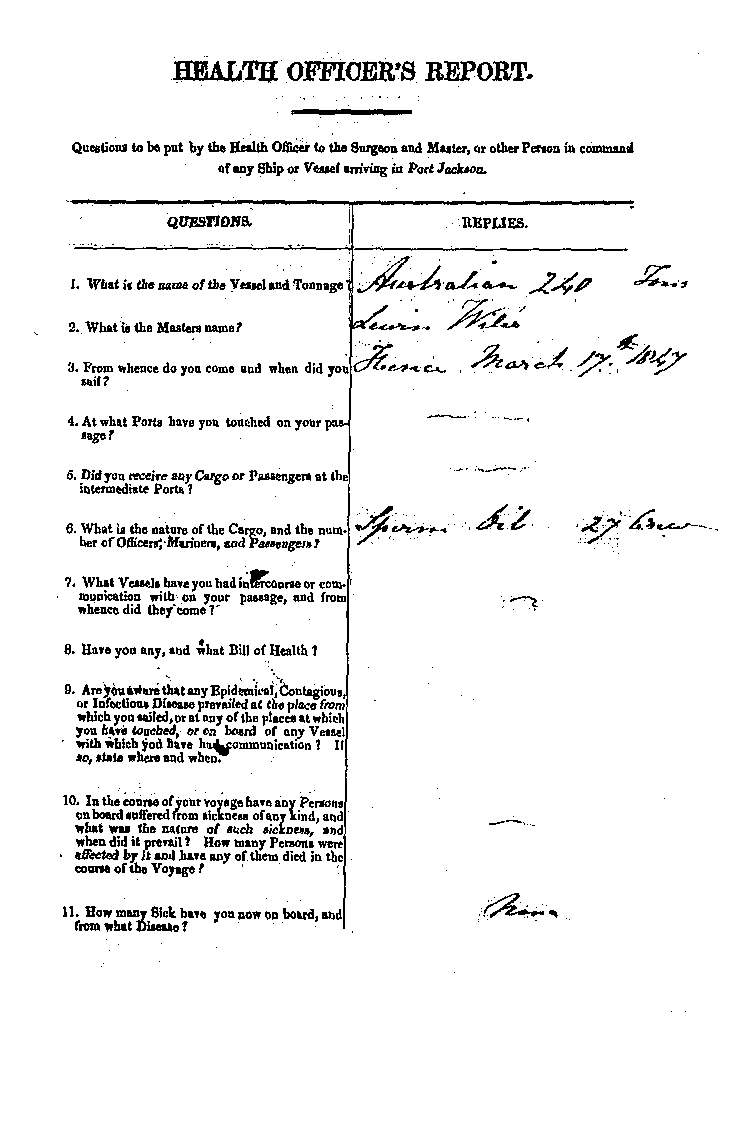 HEALTH OFFICER'S REPORT.
Questions to be put by the Health Officer to the Surgeon and Master, or other Person in command
of any Ship or Vessel arriving in Port Jackson.
QUESTIONS.
REPLIES.
1. What is the name of the Vessel and Tonnage?
Australian 240 Tons
2. What is the Masters name?
3. From whence do you come and when did you
sail?
Hence March 17.th 1847
4. At what Ports have you touched on your pas-
sage?
5. Did you receive any Cargo or Passengers at the
intermediate Ports?
6. What is the nature of the Cargo, and the num-
ber of Officers, Mariners, and Passengers?
Sperm Oil 27 Crew
7. What Vessels have you had intercourse or com-
munication with on your passage, and from
whence did they come?
8. Have you any, and what Bill of Health?
9. Are you aware that any Epidemical, Contagious,
or Infectious Disease prevailed at the place from
which you sailed, or at any of the places at which
you have touched, or on board of any Vessel
with which you have had communication? If
so, state where and when.
10. In the course of your voyage have any Persons
on board suffered from sickness of any kind, and
what was the nature of such sickness, and
when did it prevail? How many Persons were
affected by it and have any of them died in the
course of the Voyage?
11. How many Sick have you now on board, and
from what Disease?
None